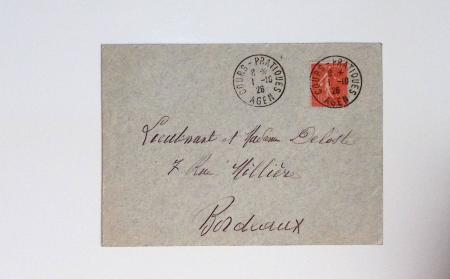 COURS - PRATIQUES
8 *
1 -10
26
AGEN
COURS - PRATIQUES
*
1 -10
26
AGEN
Lieutenant et Madame Deloste
7 Rue Millière
Bordeaux